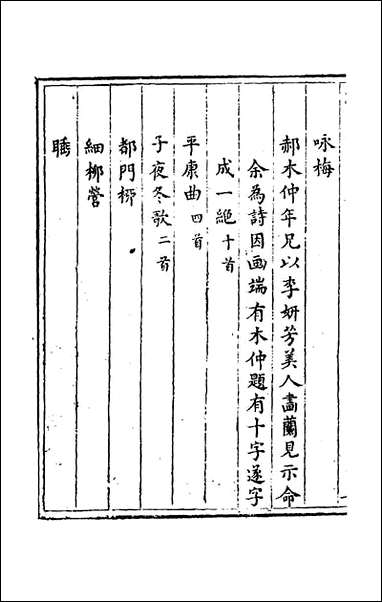 咏梅
郝木仲年兄以李妍芳美人畵蘭見示命
余為詩因画端有木仲題有十字遂字
成一絕十首
平康曲四首
子夜冬歌二首
都門柳
細柳營